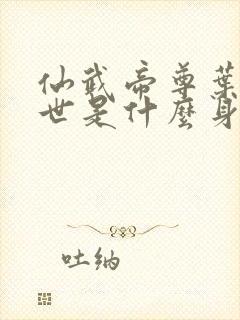 仙武帝尊葉
世是什麼身
吐納